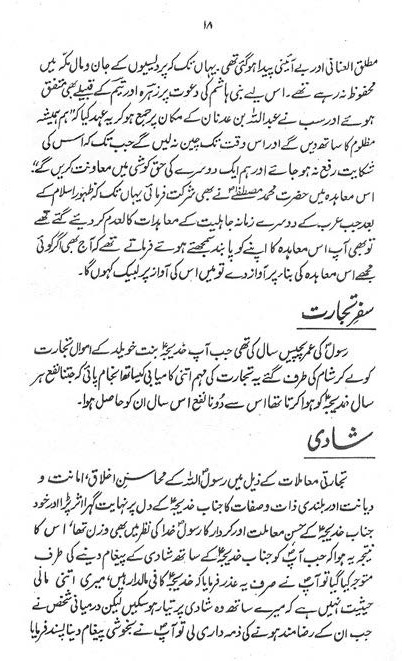 ۱۸
مطلق العنانی اور بے آئینی پیدا ہو گئی تھی۔ یہاں تک کہ پردیسیوں کے جان و مال مکہ میں
محفوظ نہ رہے تھے۔ اس لیے بنی ہاشم کی دعوت پر زہرہ اور تیم کے قبیلے بھی متفق
ہوئے اور سب نے عبداللہ بن عدنان کے مکان پر جمع ہو کر یہ عہد کیا کہ "ہم ہمیشہ
مظلوم کا ساتھ دیں گے اور اس وقت تک چین نہ لیں گے جب تک کہ اس کی
شکایت رفع نہ ہو جائے اور ہم ایک دوسرے کی حق کوشی میں معاونت کریں گے۔"
اس معاہدہ میں حضرت محمد مصطفیٰؐ نے بھی شرکت فرمائی یہاں تک کہ ظہور اسلام کے
بعد جب عرب کے دوسرے زمانہ جاہلیت کے معاہدات کالعدم کر دیئے گئے تھے
تو بھی آپ اس معاہدہ کا اپنے کو پابند سمجھتے ہوئے فرماتے تھے کہ آج بھی اگر کوئی
مجھے اس معاہدہ کی بناء پر آواز دے تو میں اس کی آواز پر لبیک کہوں گا۔
سفرِ تجارت
رسولؐ کی عمر پچیس سال کی تھی جب آپ خدیجہؑ بنت خویلد کے اموال تجارت
کو لے کر شام کی طرف گئے یہ تجارت کی مہم اتنی کامیابی کیساتھ انجام پائی کہ جتنا نفع ہر
سال خدیجہؑ کو ہوا کرتا تھا اس سے دُونا نفع اس سال ان کو حاصل ہوا۔
شادی
تجارتی معاملات کے ذیل میں رسولؐ اللہ کے محاسنِ اخلاق، امانت و
دیانت اور بلندی ذات و صفات کا جناب خدیجہؑ کے دل پر نہایت گہرا اثر پڑا اور خود
جناب خدیجہؑ کے حسنِ معاملت اور کردار کا رسولؐ خدا کی نظر میں بھی وزن تھا، اس کا
نتیجہ یہ ہوا کہ جب آپؐ کو جناب خدیجہؑ کے ساتھ شادی کے پیغام دینے کی طرف
متوجہ کیا گیا تو آپؐ نے صرف یہ عذر فرمایا کہ خدیجہؑ کافی مالدار ہیں، میری اتنی مالی
حیثیت نہیں ہے کہ میرے ساتھ وہ شادی پر تیار ہو سکیں لیکن درمیانی شخص نے
جب ان کے رضامند ہونے کی ذمہ داری لی تو آپؐ نے بخوشی پیغام دینا پسند فرمایا